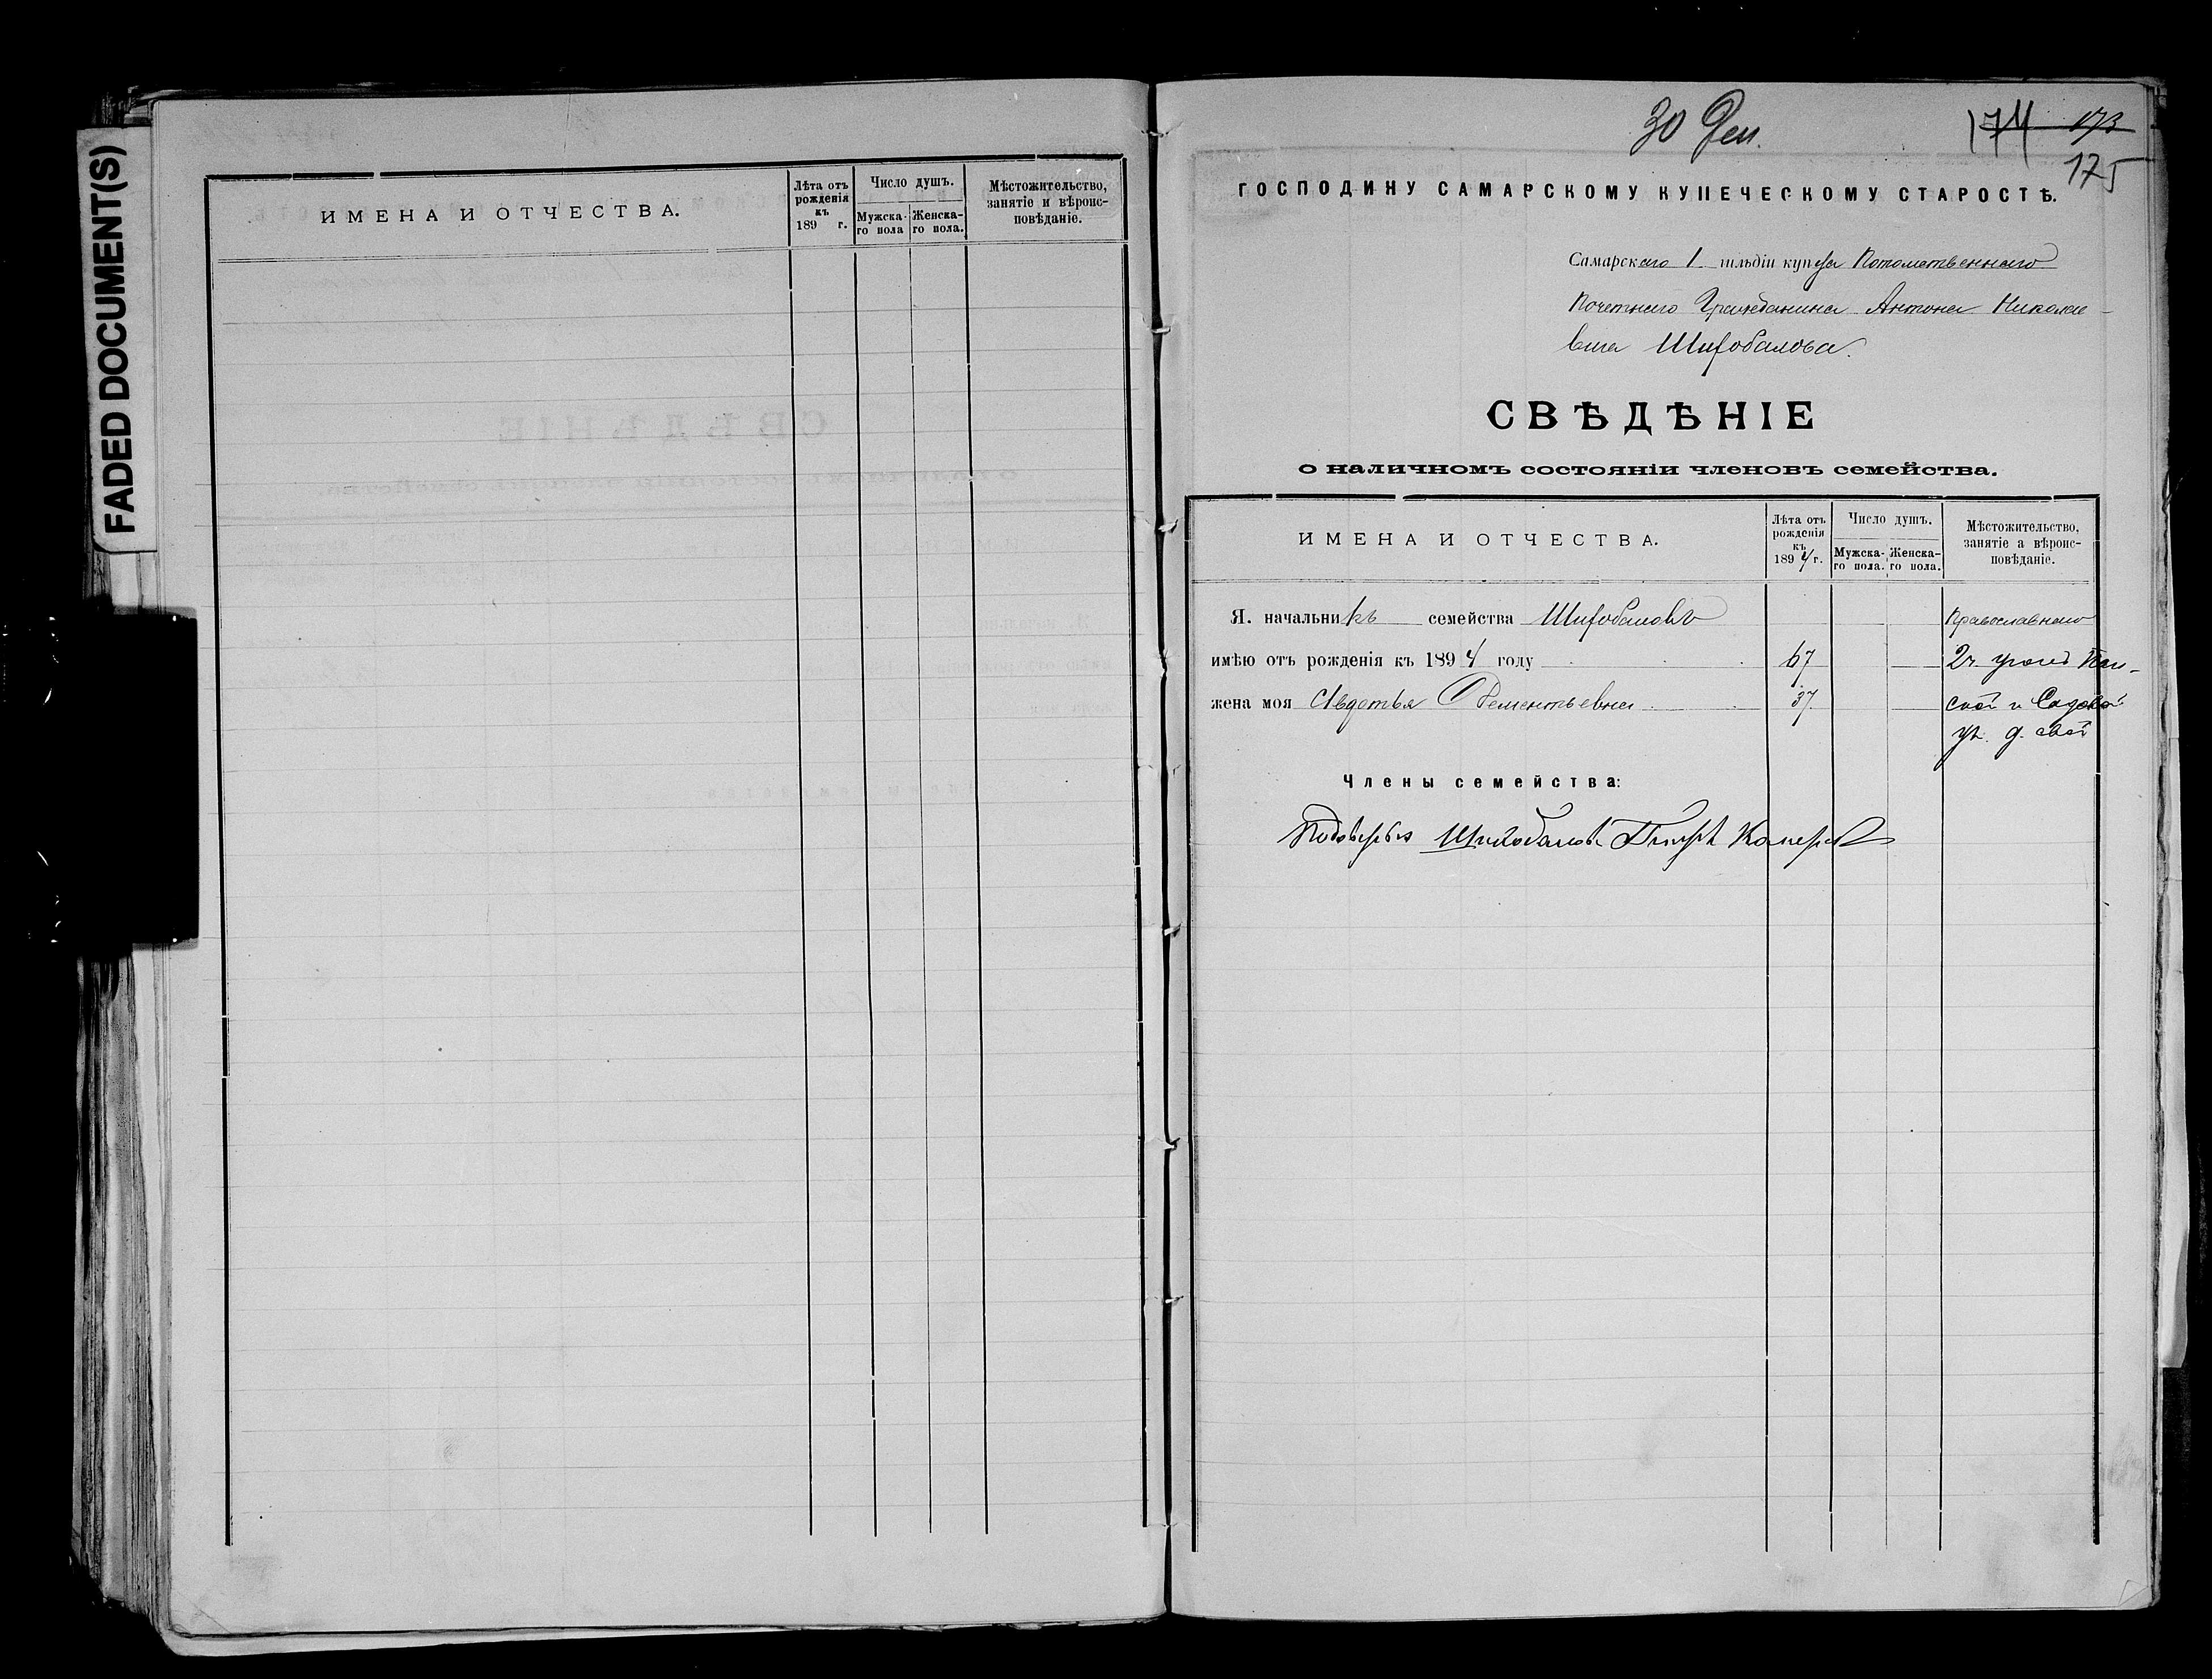 FADED DOCUMENT(S)
ИМЕНА И ОТЧЕСТВА.
Лѣта отъ рожденія къ 189 г.
Число душъ.
Мужска-го пола
Женска-го пола.
Мѣстожительство, занятіе и вѣроис-повѣданіе.
30 Дек.
174 173
175
ГОСПОДИНУ САМАРСКОМУ КУПЕЧЕСКОМУ СТАРОСТѢ.
Самарскаго 1 гильдіи купца Потомственнаго
Почетнаго Гражданина Антона Николае-
вича Шихобалова.
СВѢДѢНІЕ
о наличномъ состояніи членовъ семейства.
ИМЕНА И ОТЧЕСТВА.
Лѣта отъ рожденія къ 1894 г.
Число душъ.
Мужска-го пола.
Женска-го пола.
Мѣстожительство, занятіе а вѣроис-повѣданіе.
Я. начальникъ семейства Шихобаловъ Православнаго
имѣю отъ рожденія къ 1894 году 67 2 ч. уголъ
жена моя Авдотья Дементьевна 37 ской и Садовой
ул. д. свой
Члены семейства:
Шихобалов Петръ